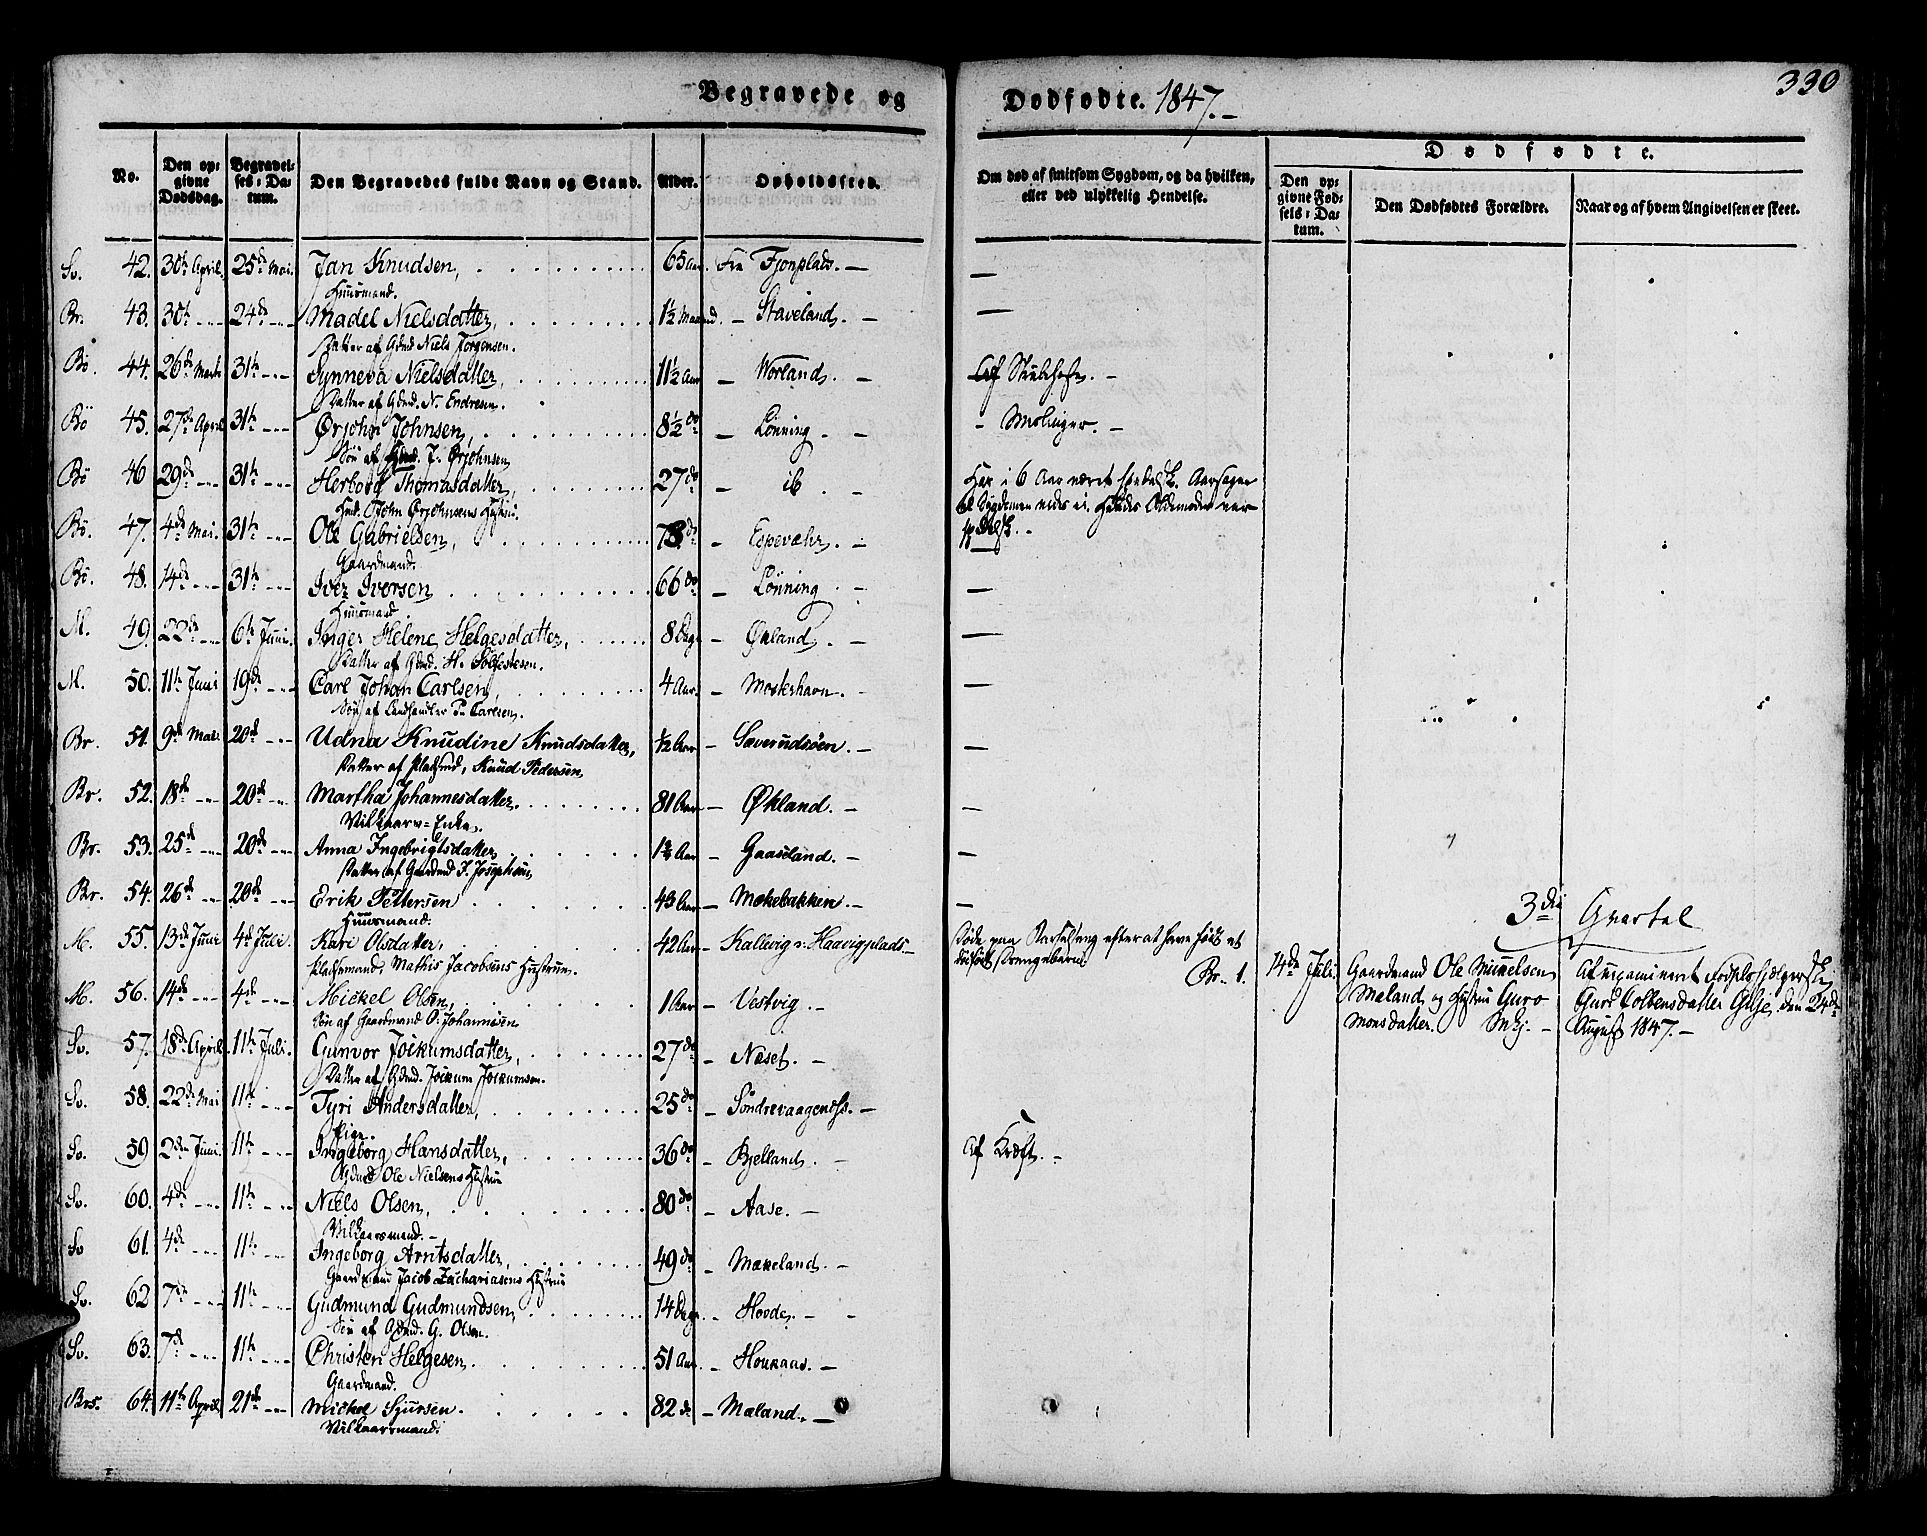 Begravede og
Dødfødte. 1847.-
330
No.
Den opgivne Dødsdag.
Begravelses-Datum.
Den Begravedes fulde Navn og Stand.
Alder.
Opholdssted.
Om død af smitsom Sygdom, og da hvilken, eller ved ulykkelig Hendelse.
Dødfødte.
Den opgivne Fødsels-Datum.
Den Dødfødtes Forældre.
Naar og af hvem Angivelsen er skeet.
Sv. 42. 30th April. 25de Mai. Jan Knudsen, 65 Aar. Fra Fjonplads. —
Huusmand.
Br. 43. 30th - - - 24de - - - Madel Nielsdatter, 1½ Maaned. - Staveland. - —
Datter af Gdmd Niels Jørgensen.
Bø. 44. 26de Marts 31te - - - Synneva Nielsdatter, 11½ Aar - Worland. - Af Strubehoste. -
Datter af Gdmd. N. Endresen.
Bø 45. 27de April 31te - - - Ørjohn Johnsen, 8½ do - Lønning. - - Meslinger. -
Søn af Gmd. J. Ørjohnsen
Bø 46 29de - - - 31te - - - Herborg Thomasdatter, 27 do - ib. - Har i 6 Aar været spedalsk. Aarsagen
Gmd. John Ørjohnsens Hustru. til Sygdommen vides ei. Hendes Oldemoder var
Bø. 47. 4de Mai. 31te - - - Ole Gabrielsen, 73 do - Espevæhr. - spedalsk. -
Gaardmand.
Bø. 48. 14de - - - 31te - - - Iver Iversen 66 do - Lønning - —
Huusmand
M. 49. 22de - - - 6te Juni. Inger Helene Helgesdatter, 8 Dage - Økland. - —
Datter af Gdmd. H. Solfestesen.
M. 50. 11te Juni 19de - - - Carl Johan Carlsen, 4 Aar. - Mosterhavn. - —
Søn af Landhandler P. Carlsen.
Br. 51. 9de Mai. 20de - - - Udna Knudine Knudsdatter, ½ Aar - Sæverudsøen. - —
Datter af Pladsmd, Knud Pedersen
Br. 52. 18de - - - 20de - - - Martha Johannesdatter. 81 Aar - Økland. - —
Vilkaars-Enke.
Br. 53. 25de - - - 20de - - - Anna Ingebrigtsdatter 1¾ Aar - Gaasland. - —
Datter af Gaardmd I. Josephsen
Br. 54. 26de - - - 20de - - - Erik Pettersen 43 Aar - Mækebakken - —
Huusmand.
3die Qvartal
M. 55. 13de Juni 4de Juli. Kari Olsdatter, 42 Aar - Kallevig v. Haavigplads - Døde paa Barselseng efterat have født et
Pladsmand, Mathis Jacobsens Hustrue. dødfødt Drengebarn
Br. 1. 14de Juli. Gaardmand Ole Mickelsen Af examineret Fødselshjelperske
M. 56. 14de - - - 4de - - - Mickel Olsen, 1 Aar - Vestvig. -
Mæland og Hustru Guro Guro Colbensdatter Gilje, den 24de
Søn af Gaardmand O. Johannesen
Monsdatter. August 1847. -
Sv. 57. 18de April. 11te Juli. Gunvor Jockumsdatter, 27 do - Næset. -
Datter af Gdmd. Jockum Jockumsen.
Sv. 58. 22de Mai 11te - - - Tyri Andersdatter, 25 do - Søndrevaagenæss. -
Pige.
Sv. 59 2den Juni. 11te - - - Ingeborg Hansdatter, 36 do - Bjelland. - Af Kræft. -
Gdmd Ole Nielsens Hustrue
Sv. 60. 4de - - - 11te - - - Niels Olsen, 80 do - Aase. -
Vilkaarsmand. -
Sv 61. 4de - - - 11te - - - Ingeborg Arntsdatter, 49 do - Mækeland. -
Gaardmand Jacob Zachariasens Hustrue
Sv. 62 7de - - - 11te - - - Gudmund Gudmundsen, 14 Dage - Hovde. -
Søn af Gdmd. G. Olsen.
Sv. 63. 7de - - - 11te - - - Christen Helgesen. 51 Aar. - Houkaas. -
Gaardmand.
Brs. 64. 11te April 21de - - - Mickel Sjursen. 82 do - Mæland. -
Vilkaarsmand.